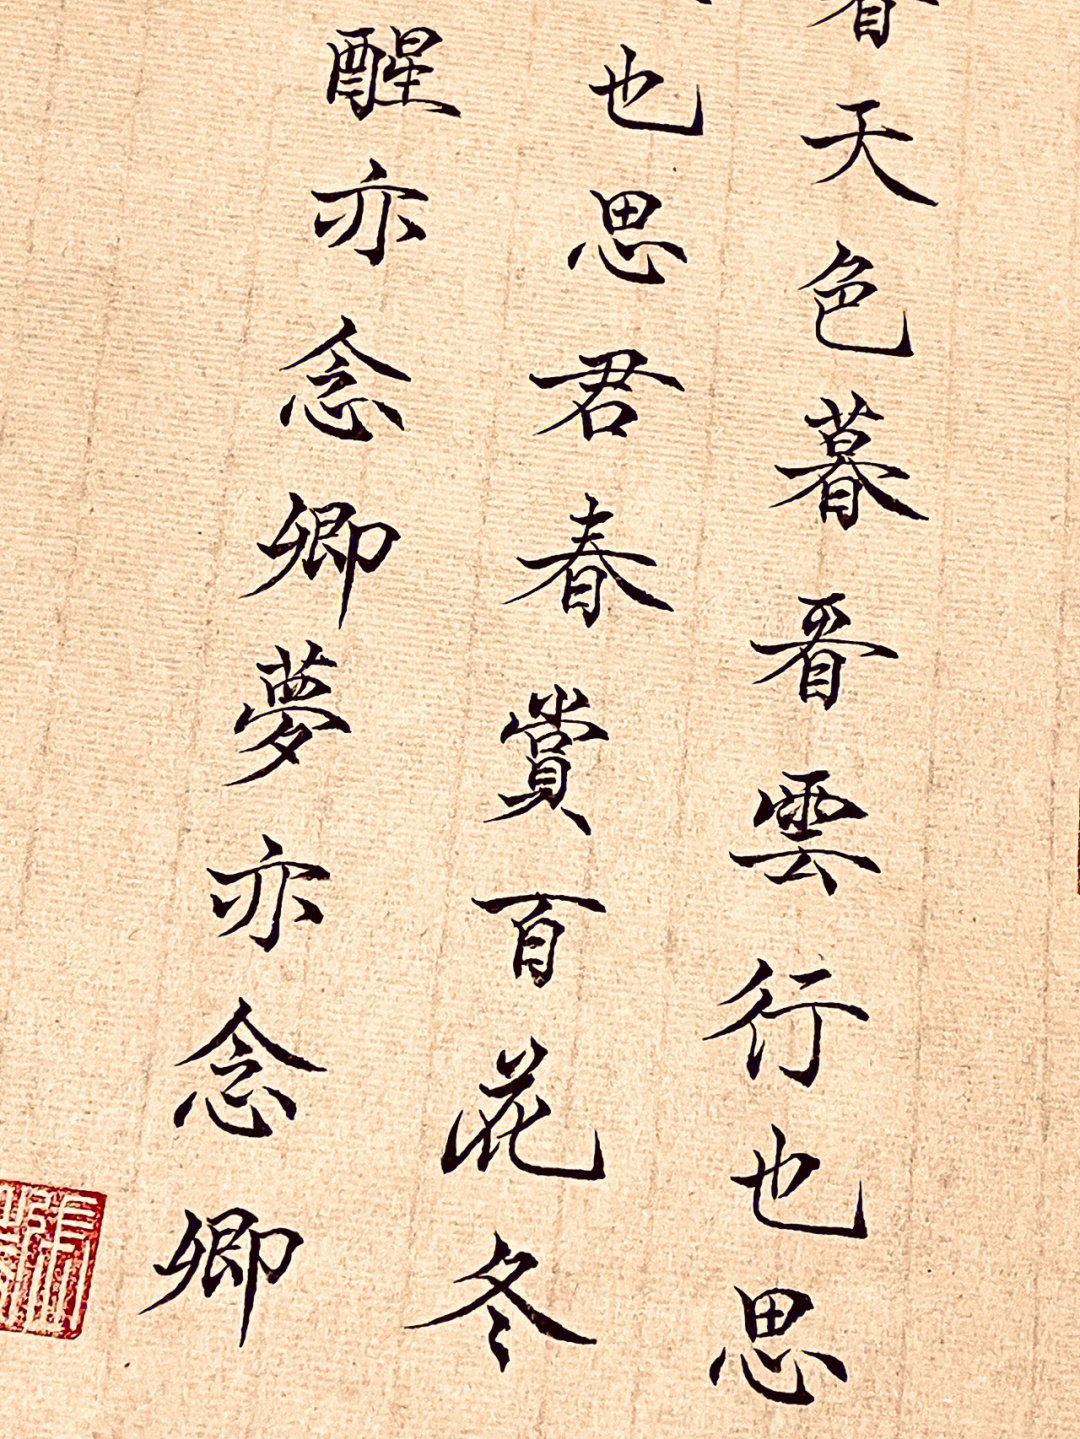 看天色暮看雲行也思
也思君春賞百花冬
醒亦念卿夢亦念卿